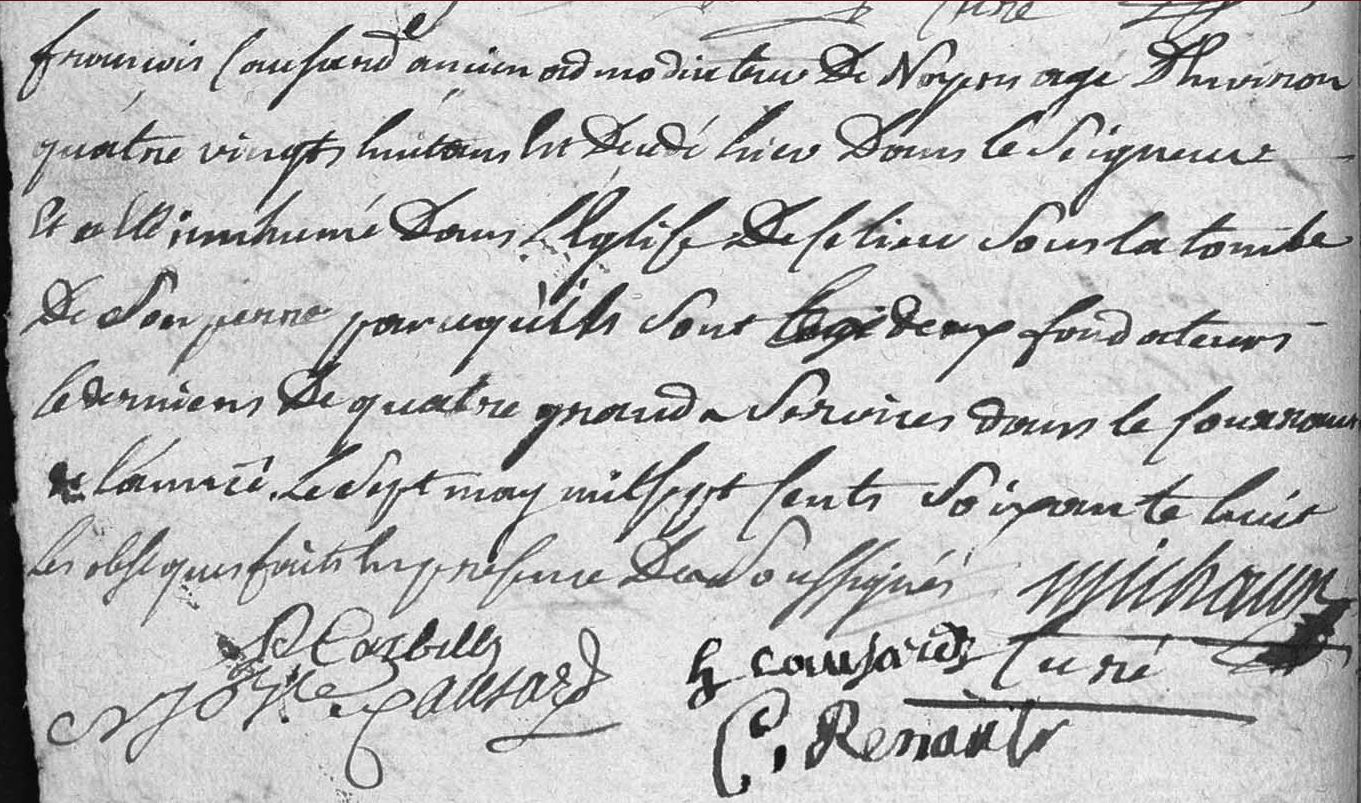 Curé
francois Causard ancien admodiateur De Noyers agé D'huviron
quátre vingts huit ans Est Decedé hier Dans le Seigneur
Et a Eté inmhumé Dans L'Eglise De ce lieu Sous la tombe
De Son perre parcequ'ils sont deux fondateurs
le derniers De quatre grand Services dans le
de l'année. Le Sept may mil sept cents Soixante huit
Les obseques faits En presence Des Soussignés Michaux
Curé
Causard h causard
C. Renault